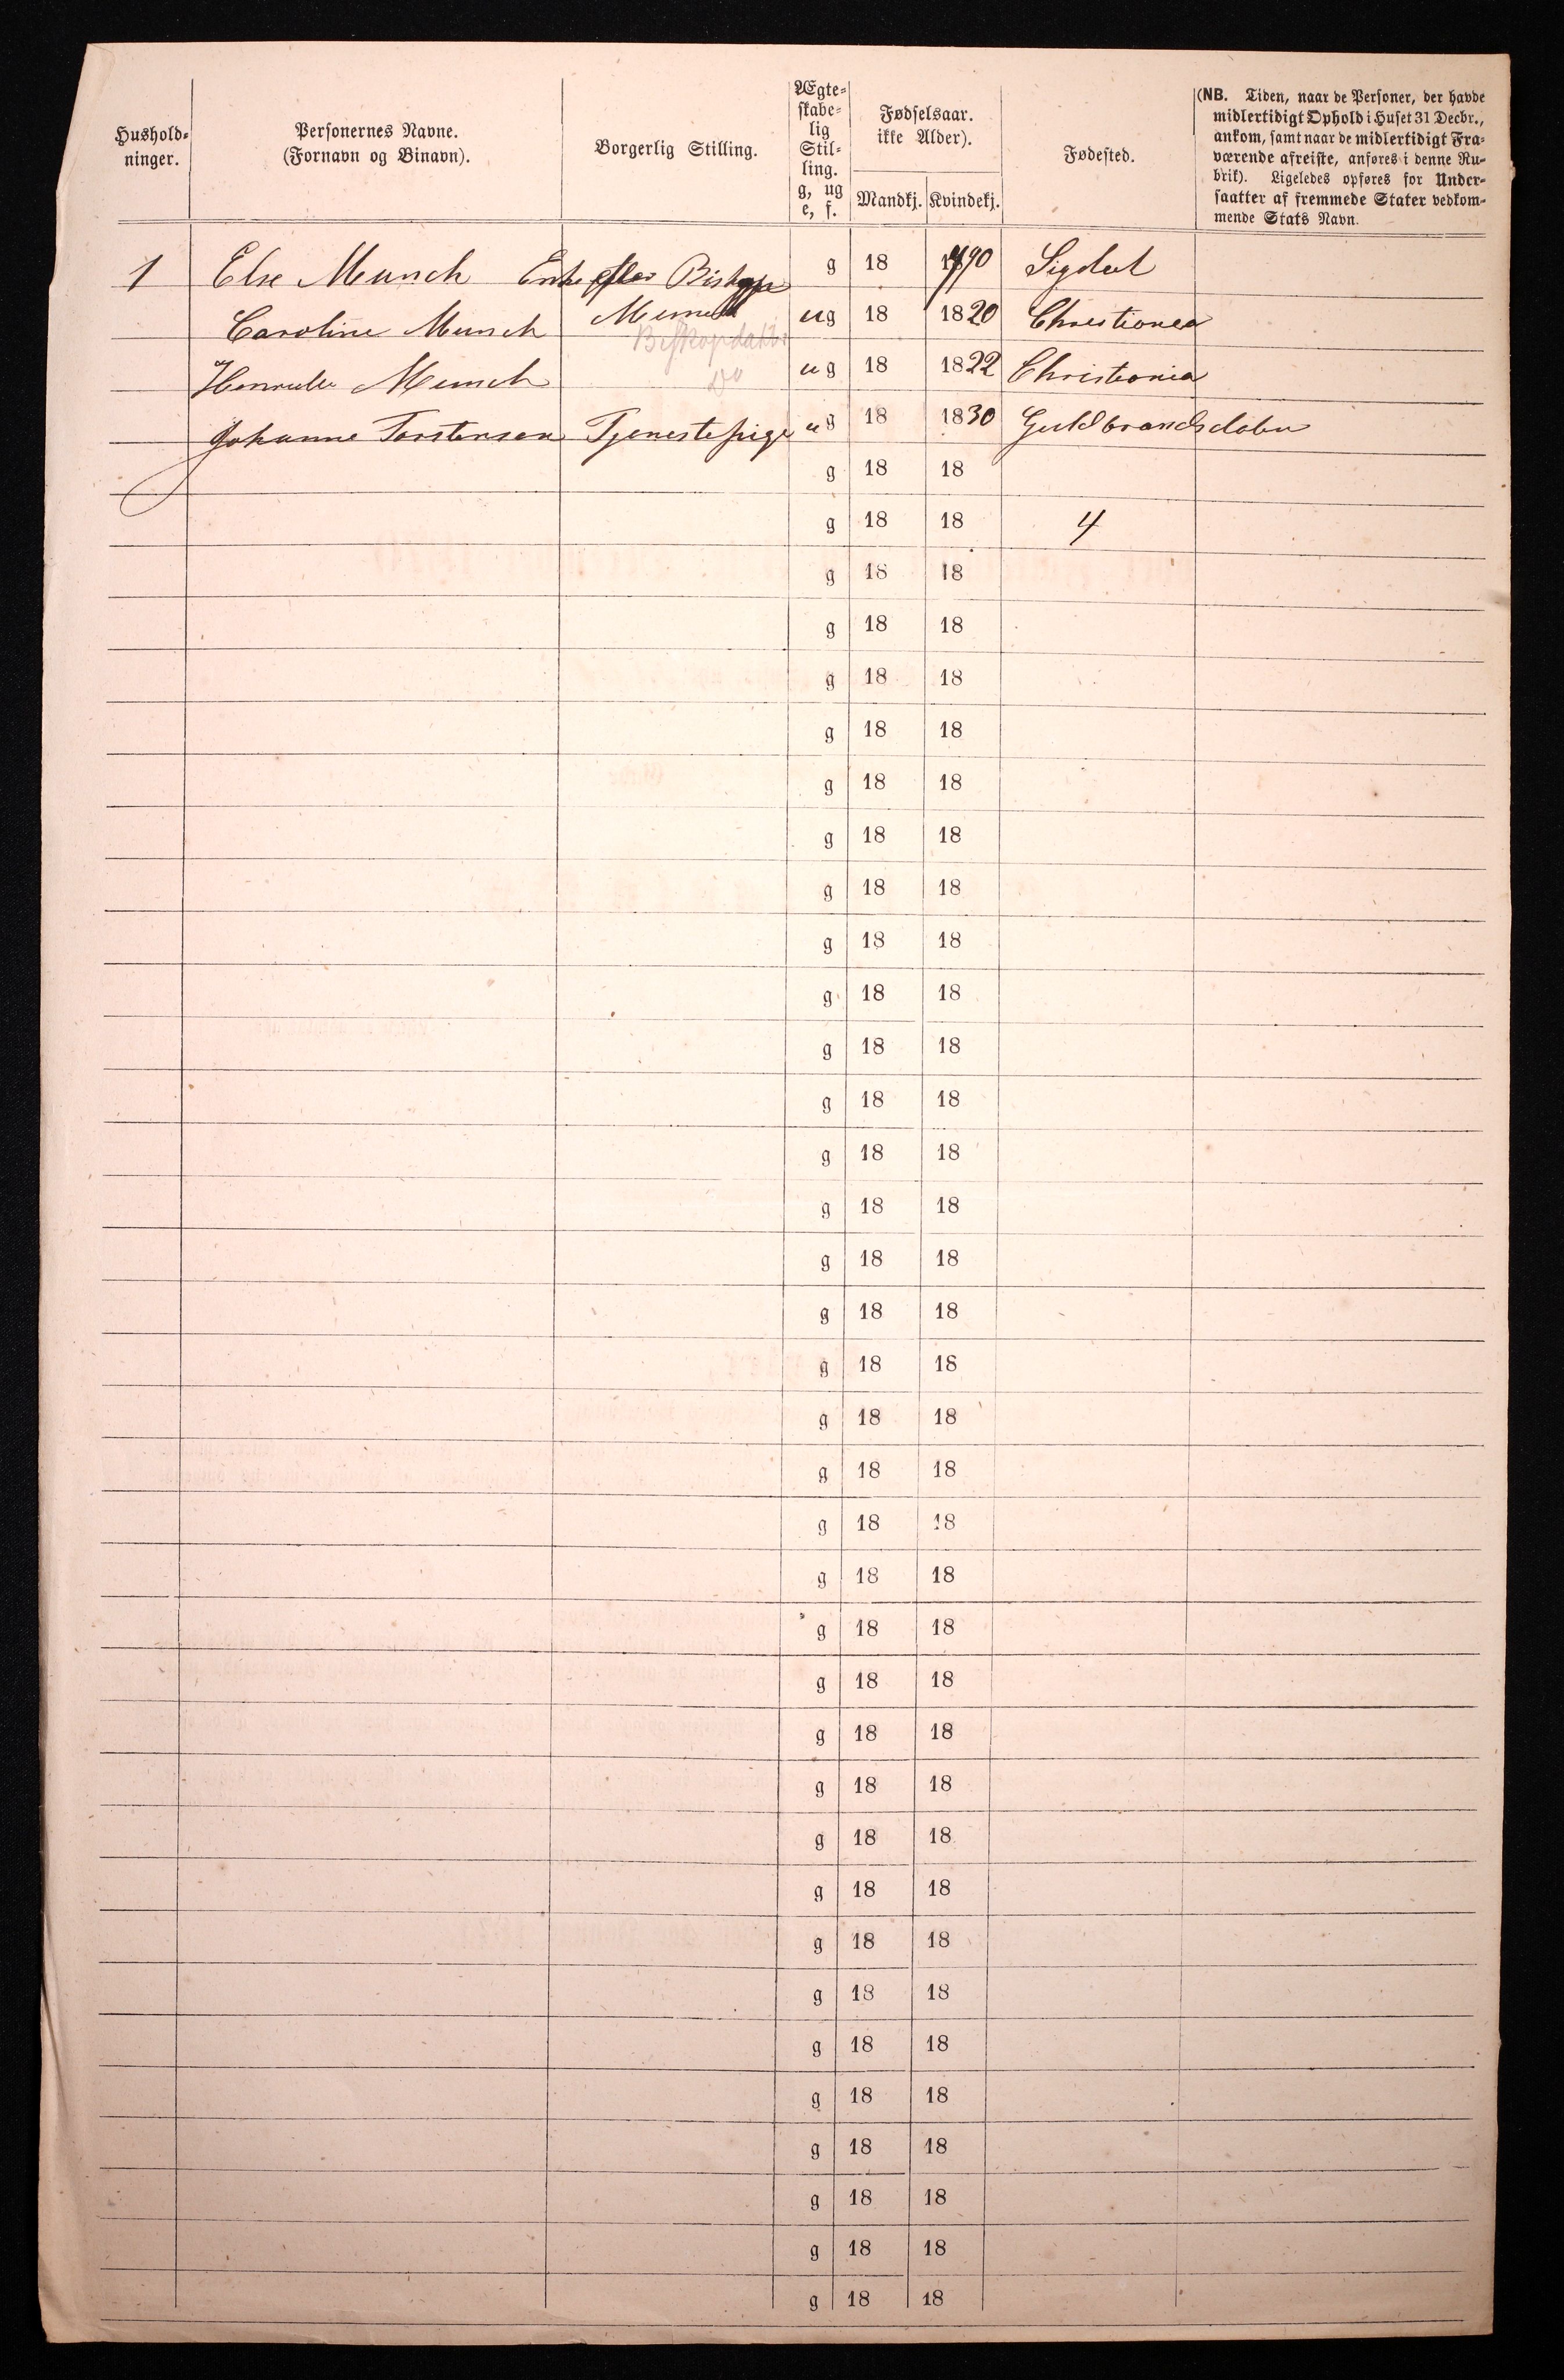 Hushold-
ninger.
Personernes Navne.
(Fornavn og Binavn).
Borgerlig Stilling.
Ægte-
skabe-
lig
Stil-
ling.
g, ug
e, f.
Fødselsaar.
ikke Alder).
Mandkj. Kvindekj.
Fødested.
(NB. Tiden, naar de Personer, der havde
midlertidigt Ophold i Huset 31 Decbr.,
ankom, samt naar de midlertidigt Fra-
værende afreiste, anføres i denne Ru-
brik). Ligeledes opføres for Under-
saatter af fremmede Stater vedkom-
mende Stats Navn.
1 Else Munch Enke efter Biskop g 18 1790 Sigdal
Munch
Caroline Munch Biskopdatter ug 18 1820 Christiania
Henriette Munch Do ug 18 1822 Christiania
Johanne Torstensen Tjenestepige ug 18 1830 Guldbrandsdalen
g 18 18
g 18 18 4
g 18 18
g 18 18
g 18 18
g 18 18
g 18 18
g 18 18
g 18 18
g 18 18
g 18 18
g 18 18
g 18 18
g 18 18
g 18 18
g 18 18
g 18 18
g 18 18
g 18 18
g 18 18
g 18 18
g 18 18
g 18 18
g 18 18
g 18 18
g 18 18
g 18 18
g 18 18
g 18 18
g 18 18
g 18 18
g 18 18
g 18 18
g 18 18
g 18 18
g 18 18